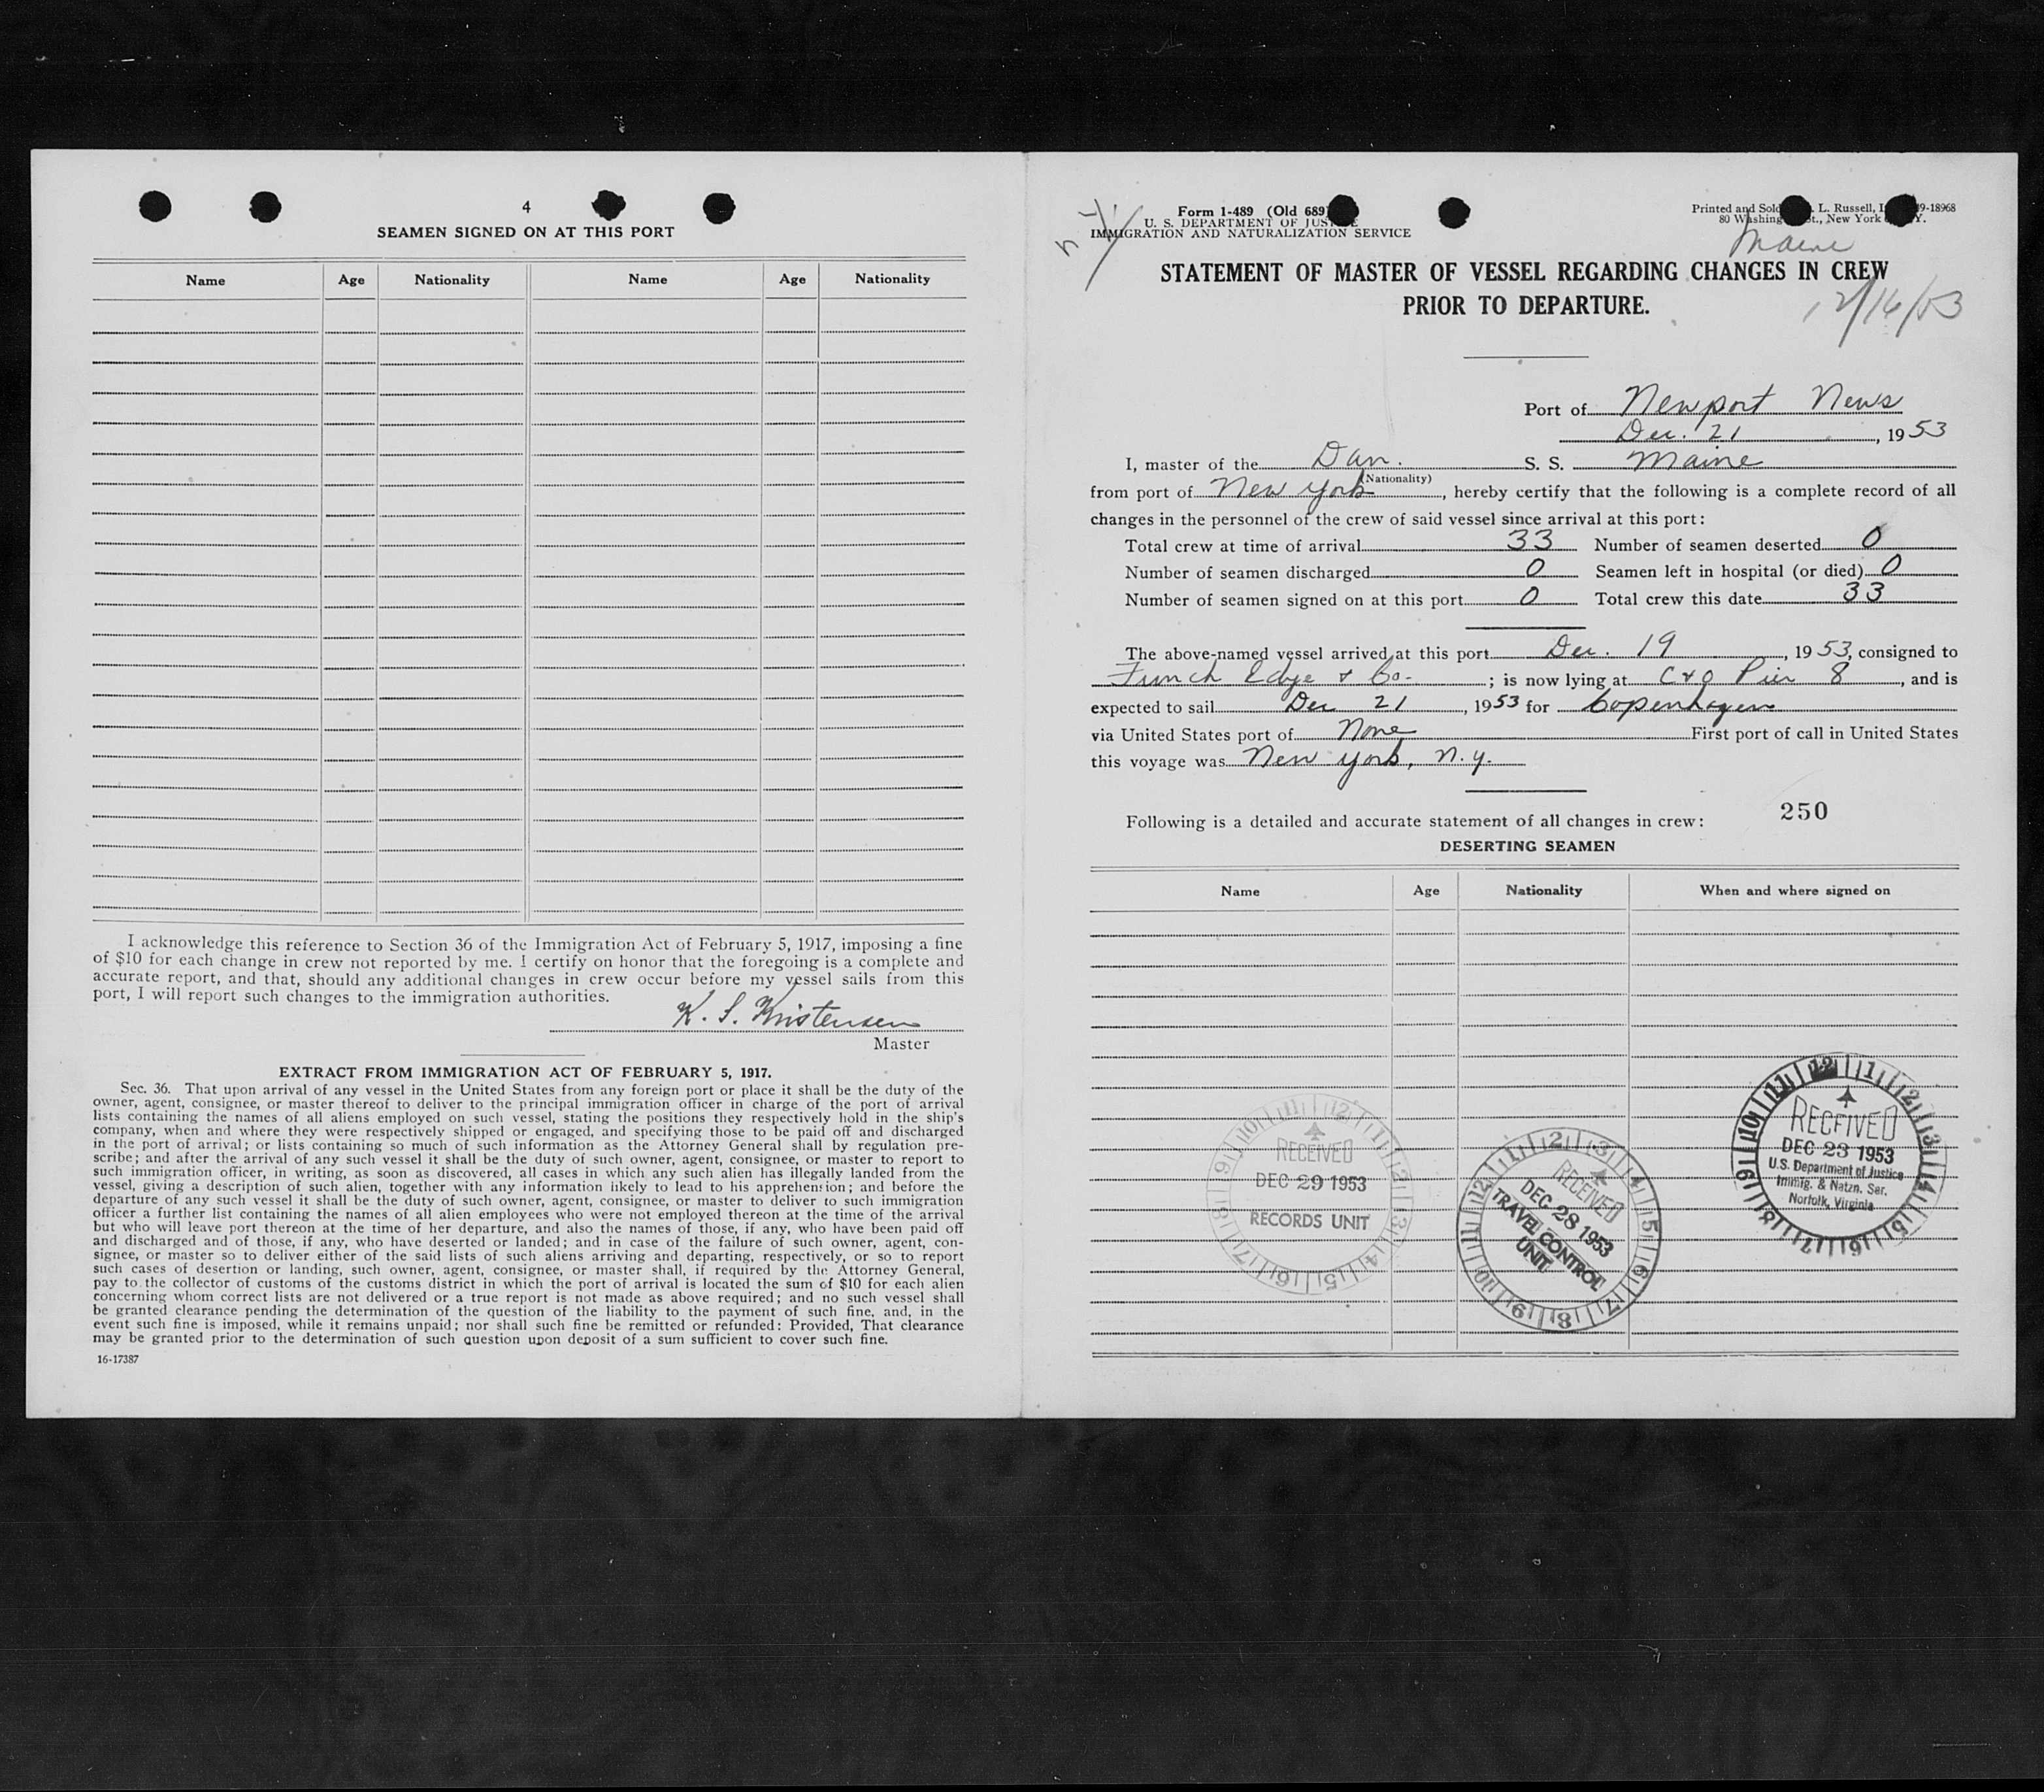 4
SEAMEN SIGNED ON AT THIS PORT
Name Age Nationality Name Age Nationality
I acknowledge this reference to Section 36 of the Immigration Act of February 5, 1917, imposing a fine
of $10 for each change in crew not reported by me. I certify on honor that the foregoing is a complete and
accurate report, and that, should any additional changes in crew occur before my vessel sails from this
port, I will report such changes to the immigration authorities.
K. S. Kristensen
Master
EXTRACT FROM IMMIGRATION ACT OF FEBRUARY 5, 1917.
Sec. 36. That upon arrival of any vessel in the United States from any foreign port or place it shall be the duty of the
owner, agent, consignee, or master thereof to deliver to the principal immigration officer in charge of the port of arrival
lists containing the names of all aliens employed on such vessel, stating the positions they respectively hold in the ship's
company, when and where they were respectively shipped or engaged, and specifying those to be paid off and discharged
in the port of arrival; or lists containing so much of such information as the Attorney General shall by regulation pre-
scribe; and after the arrival of any such vessel it shall be the duty of such owner, agent, consignee, or master to report to
such immigration officer, in writing, as soon as discovered, all cases in which any such alien has illegally landed from the
vessel, giving a description of such alien, together with any information likely to lead to his apprehension; and before the
departure of any such vessel it shall be the duty of such owner, agent, consignee, or master to deliver to such immigration
officer a further list containing the names of all alien employees who were not employed thereon at the time of the arrival
but who will leave port thereon at the time of her departure, and also the names of those, if any, who have been paid off
and discharged and of those, if any, who have deserted or landed; and in case of the failure of such owner, agent, con-
signee, or master so to deliver either of the said lists of such aliens arriving and departing, respectively, or so to report
such cases of desertion or landing, such owner, agent, consignee, or master shall, if required by the Attorney General,
pay to the collector of customs of the customs district in which the port of arrival is located the sum of $10 for each alien
concerning whom correct lists are not delivered or a true report is not made as above required; and no such vessel shall
be granted clearance pending the determination of the question of the liability to the payment of such fine, and, in the
event such fine is imposed, while it remains unpaid; nor shall such fine be remitted or refunded: Provided, That clearance
may be granted prior to the determination of such question upon deposit of a sum sufficient to cover such fine.
16-17387
Form 1-489 (Old 689)
U. S. DEPARTMENT OF JUSTICE
IMMIGRATION AND NATURALIZATION SERVICE
Printed and Sold L. Russell, 9-18968
80 Washing St., New York Y.
Maine
STATEMENT OF MASTER OF VESSEL REGARDING CHANGES IN CREW
PRIOR TO DEPARTURE.
12/16/53
Port of Newport News
Dec. 21, 1953
I, master of the Dan. S. S. Maine
(Nationality)
from port of New York, hereby certify that the following is a complete record of all
changes in the personnel of the crew of said vessel since arrival at this port:
Total crew at time of arrival 33 Number of seamen deserted 0
Number of seamen discharged 0 Seamen left in hospital (or died) 0
Number of seamen signed on at this port 0 Total crew this date 33
The above-named vessel arrived at this port Dec. 19, 1953, consigned to
Funch Edye & Co.; is now lying at C & O Pier 8, and is
expected to sail Dec 21, 1953 for Copenhagen
via United States port of None First port of call in United States
this voyage was New York, N.Y.
250
Following is a detailed and accurate statement of all changes in crew:
DESERTING SEAMEN
Name Age Nationality When and where signed on
RECEIVED
DEC 29 1953
RECORDS UNIT
RECEIVED
DEC 28 1953
TRAVEL CONTROL
UNIT
RECEIVED
DEC 23 1953
U.S. Department of Justice
Immig. & Natzn. Ser.
Norfolk, Virginia